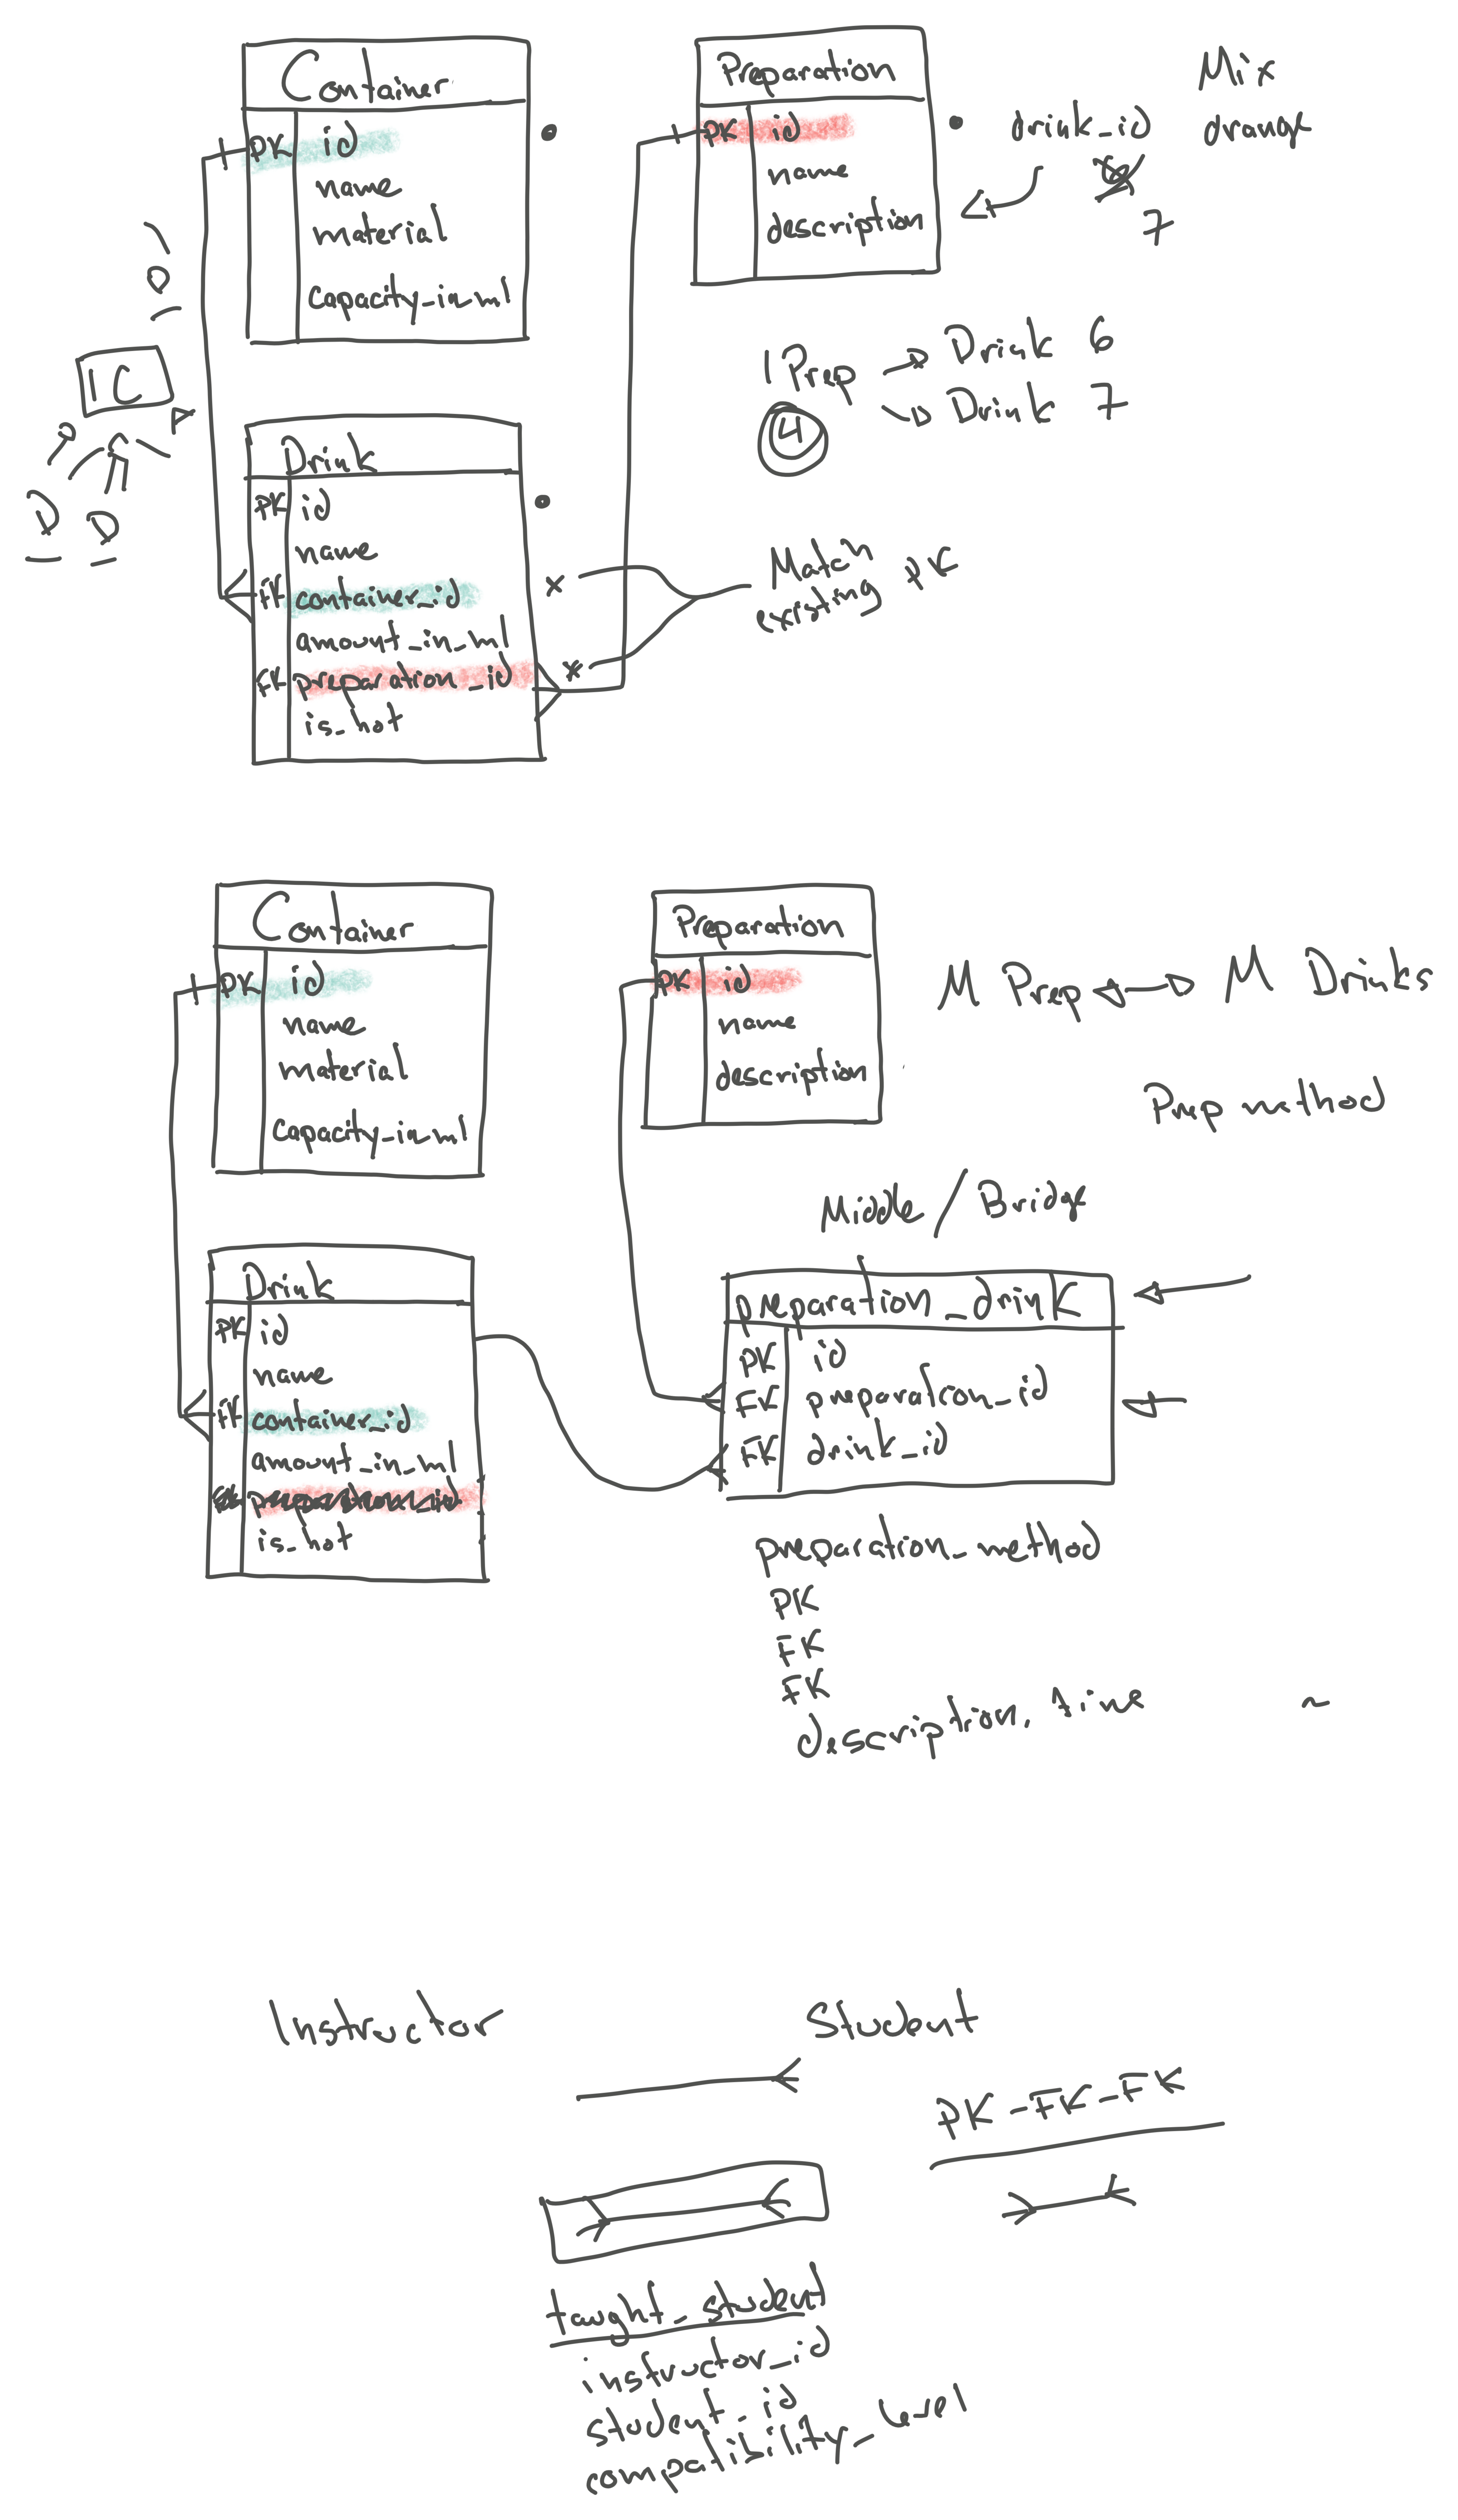 Container
PK id
name
material
capacity_in_ml
Preparation
PK id
name
description
drink_id
Mix
7
1 Prep → Drink 6
→ Drink 7
4
1 C
1 D
1 D
Drink
PK id
name
FK container_id
amount_in_ml
FK preparation_id
is_hot
Match
existing PK
Container
PK id
name
material
capacity_in_ml
Preparation
PK id
name
description
M Prep ↔ M Drinks
Prep method
Middle / Bridge
Drink
PK id
name
FK container_id
amount_in_ml
is_hot
preparation_drink
PK id
FK preparation_id
FK drink_id
preparation_method
PK
FK
FK
description, time
Instructor
Student
PK - FK - FK
taught_student
instructor_id
student_id
compatibility_level